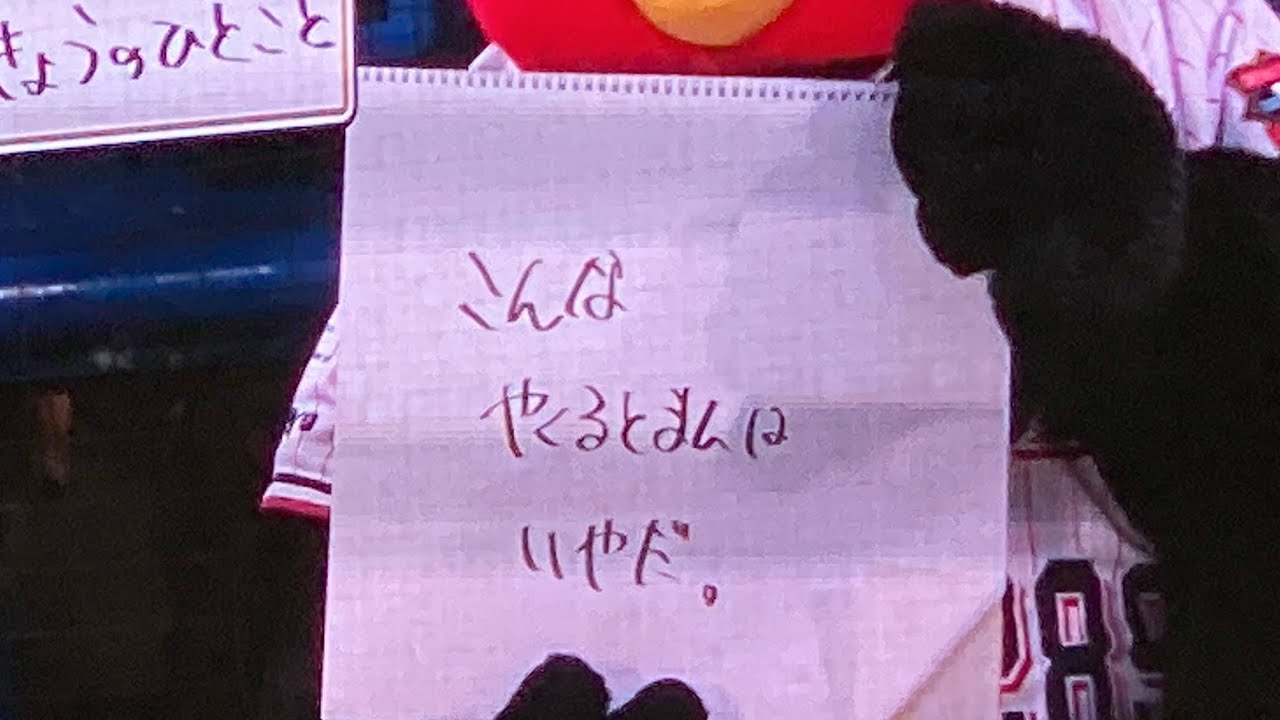 きょうのひとこと
こんな
やくるとまんは
いやだ。